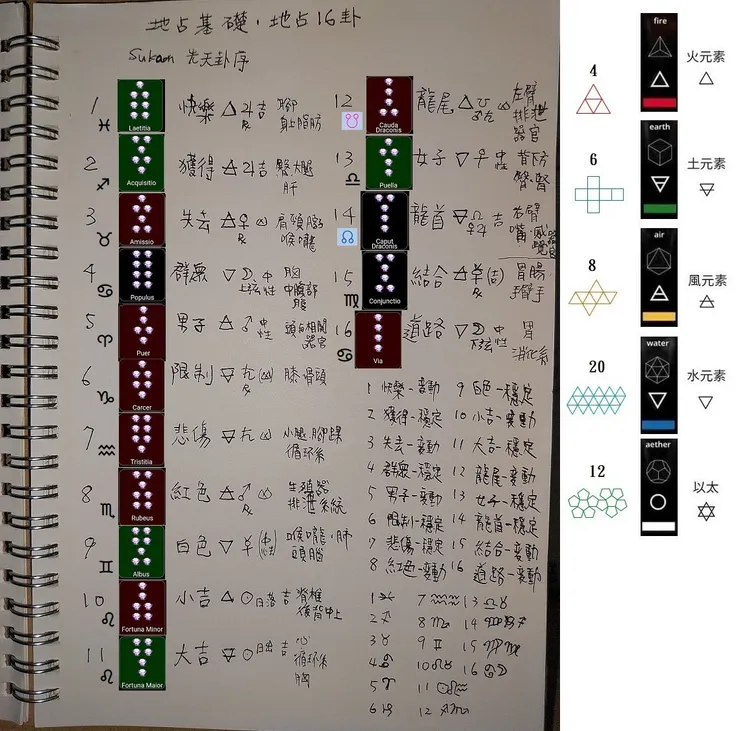 地占基礎·地占16卦
Sukaon 先天卦序
1 ♓ Laetitia 快樂 🜂 ♃ 吉 腳
R 身上脂肪
2 ♐ Acquisitio 獲得 🜁 ♃ 吉 臀、大腿
肝
3 ♉ Amissio 失去 ♀ 凶 肩頸
R 喉嚨
4 ♋ Populus 群眾 ▽ ☽ 中 胸
上弦 性 中腹部
5 ♈ Puer 男子 ♂ 中性 頭白相關
器官
6 ♑ Carcer 限制 🜃 ♄ 凶 膝·骨頭
R
7 ♒ Tristitia 悲傷 ♄ 凶 小腿、腳踝
循環系
8 ♏ Rubeus 紅色 🜁 ♂ 凶 生殖器
R 排泄系統
9 ♊ Albus 白色 ▽ ☿ (中性) 喉嚨·肺
頭腦
10 ♌ Fortuna Minor 小吉 △ ☉ 日落 吉 脊椎
後背中上
11 ♌ Fortuna Maior 大吉 🜃 ☉ 日出 吉 心
循環系
胸
12 ☋ Cauda Draconis 龍尾 △ ☋ 凶 左臂
♂♄ 排泄
器官
13 ♎ Puella 女子 ▽ ♀ 中性 背下方
臀·腎
14 ☊ Caput Draconis 龍首 🜃 ☊ 吉 右臂
♀♃ 嘴·感
覺器官
15 ♍ Conjunctio 結合 🜁 ☿ (吉) 胃腸
R 手臂手
16 ♋ Via 道路 ▽ ☽ 中 胃
下弦 性 消化系
1 快樂-變動 9 白色-穩定
2 獲得-穩定 10 小吉-變動
3 失去-變動 11 大吉-穩定
4 群眾-穩定 12 龍尾-變動
5 男子-變動 13 女子-穩定
6 限制-穩定 14 龍首-穩定
7 悲傷-穩定 15 結合-變動
8 紅色-變動 16 道路-變動
1 ♓ 7 ♒ 13 ♎
2 ♐ 8 ♏ 14
3 ♉ 9 ♊ 15
4 ♋ 10 ♌ 16 ♋
5 ♈ 11
6 ♑ 12
4 fire 火元素 △
6 earth 土元素 🜃
8 air 風元素 🜁
20 water 水元素 ▽
12 aether 以太